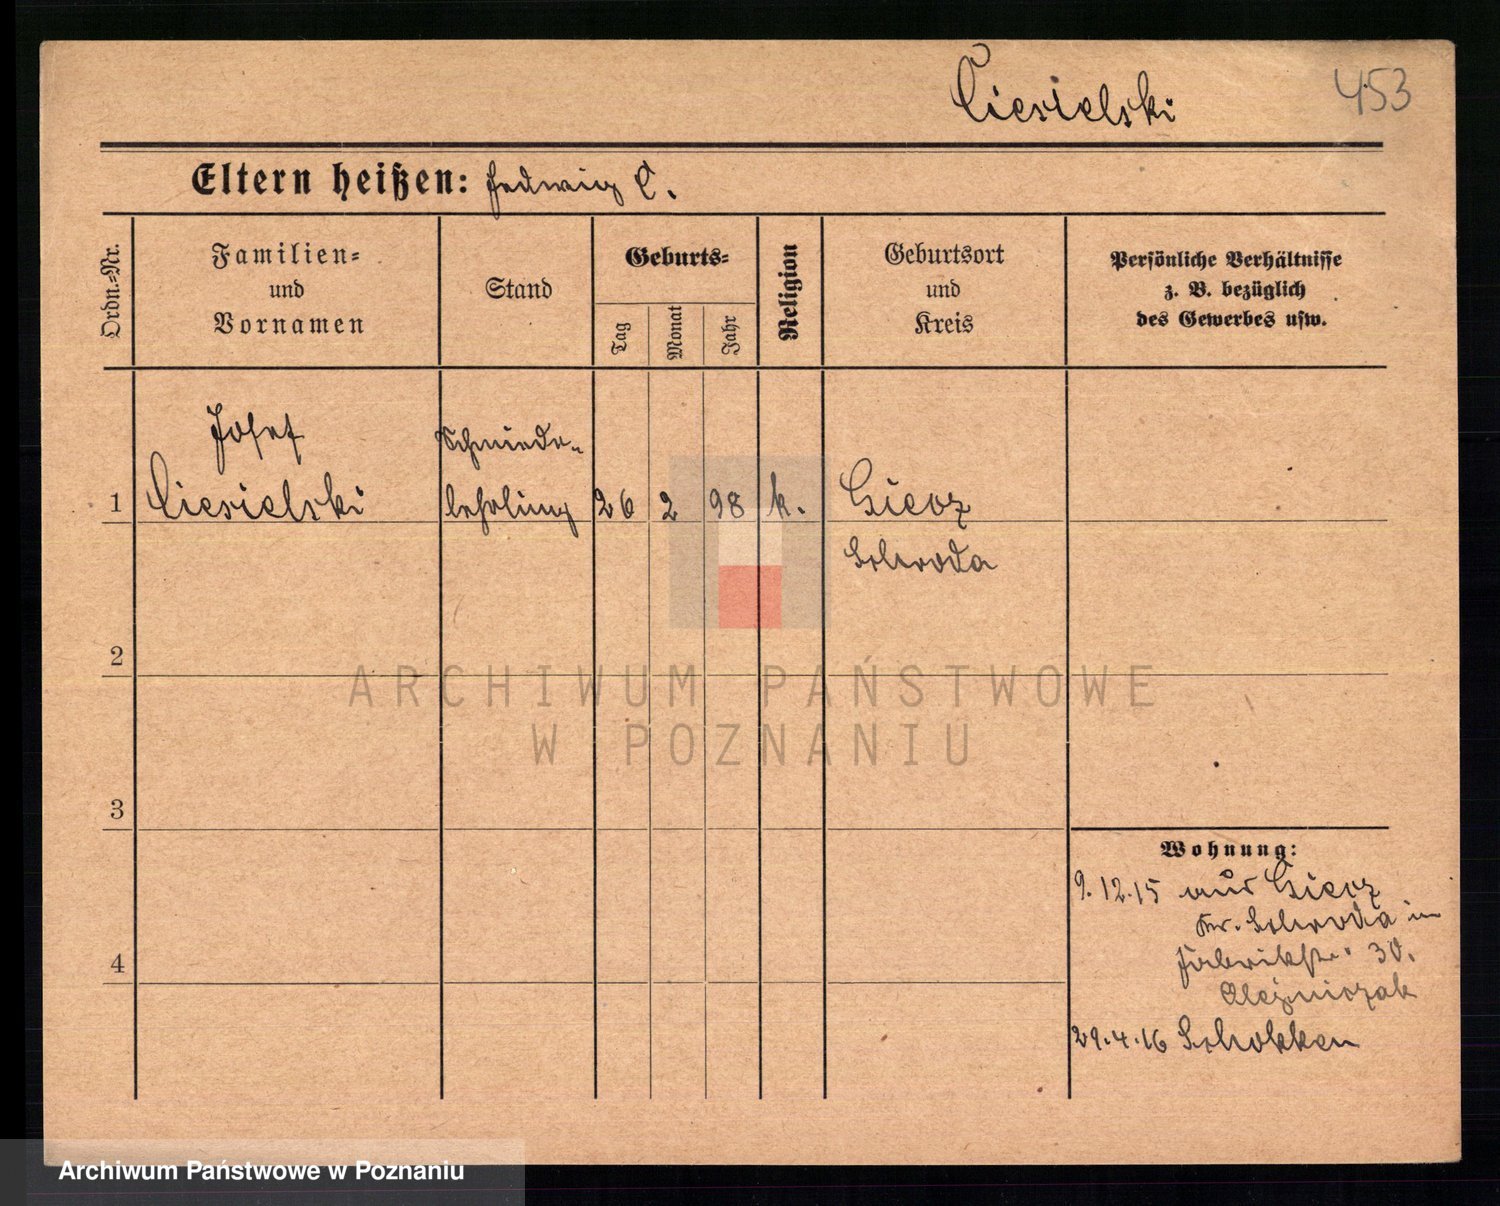 Ciesielski
453
Eltern heißen: Hedwig C.
Ordn.-Nr.
Familien-
und
Vornamen
Stand
Geburts-
Tag
Monat
Jahr
Religion
Geburtsort
und
Kreis
Persönliche Verhältnisse
z. B. bezüglich
des Gewerbes usw.
Josef
Schmiede-
1 Ciesielski lehrling 26 2 98 k. Giecz
Schroda
2
ARCHIWUM PAŃSTWOWE
W POZNANIU
3
Wohnung:
9.12.15 aus Giecz
Kr. Schroda in
Fabrikstr. 30.
4
29.4.16 Schokken
Archiwum Państwowe w Poznaniu